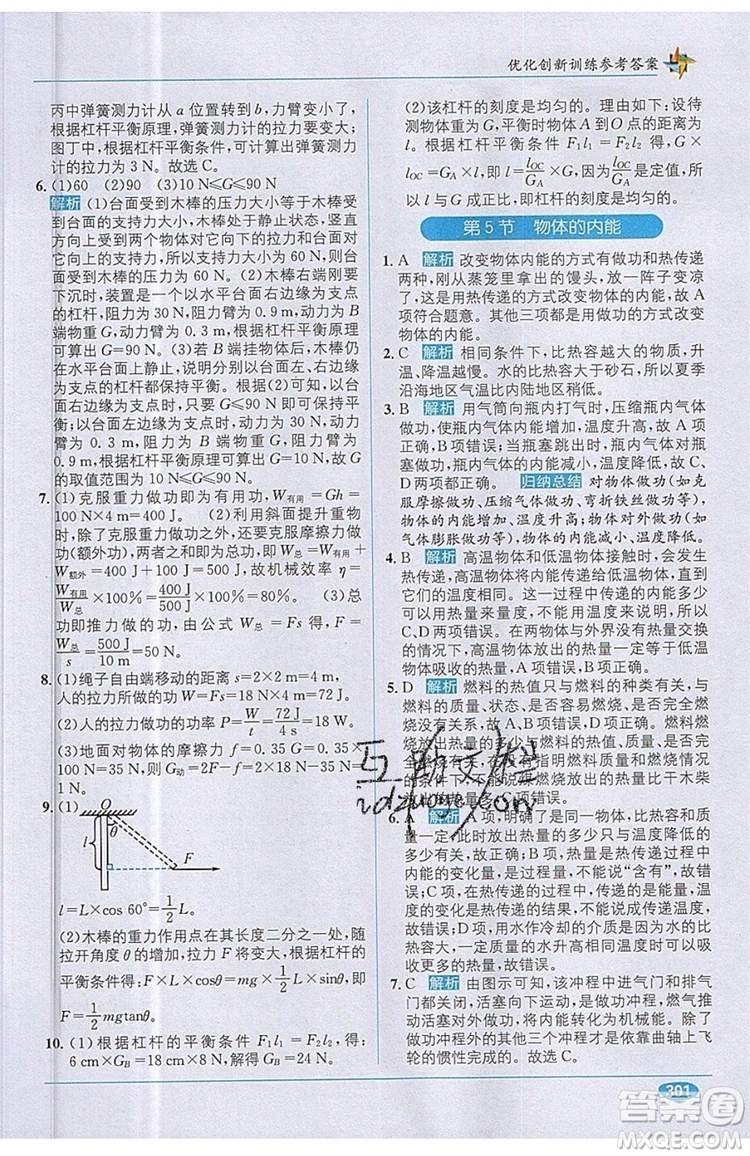 优化创新训练参考答案
丙中弹簧测力计从 a 位置转到 b,力臂变小了,
根据杠杆平衡原理,弹簧测力计的拉力变大;
图丁中,根据杠杆平衡条件,可计算出弹簧测力
计的拉力为 3 N。故选 C。
6. (1)60 (2)90 (3)10 N≤G≤90 N
解析 (1)台面受到木棒的压力大小等于木棒受
到台面的支持力大小,木棒处于静止状态,竖直
方向上两个物体对它向下的拉力和台面对它向
上的支持力大小相等,所以支持力为 60 N,台面
受到木棒的压力为 60 N。(2)木棒右端刚开始
下沉时,装置是一个以水平台面右边缘为支点
的杠杆,阻力为 30 N,阻力臂为 0.9 m,动力臂
为 0.3 m,根据杠杆平衡原理可计算得到动力
为 90 N。(3)若 B 端挂物体后,木棒仍在水平
台面上保持平衡,则以台面左边缘或右边缘为支点
的杠杆都保持平衡。
台面右边缘为支点时,只要 G≤90 N;当以水平
台面左边缘为支点时,动力为 30 N,动力臂为
0.3 m,阻力为 B 端物体的重力,阻力臂为
0.9 m,根据杠杆平衡原理可得 G≥10 N。故 G
的取值范围为 10 N≤G≤90 N。
7. (1)克服重力做功即为有用功,W有用=Gh=
100 N×4 m=400 J。 (2)利用斜面提升重物
时,除了克服重力做功以外,还要克服摩擦力做
功(额外功),两者之和即为总功,即 W总=W有用+
W额外=400 J+100 J=500 J。故机械效率 η=
W有用/W总×100%=400 J/500 J×100%=80%。 (3)总
功即推力做的功,由公式 W总=Fs 得,F=
W总/s=500 J/10 m=50 N。
8. (1)绳子自由端移动的距离 s=2×2 m=4 m,
人的拉力所做的功 W=Fs=18 N×4 m=72 J。
(2)人的拉力做功的功率 P=W/t=72 J/4 s=18 W。
(3)地面对物体的摩擦力 f=0.35 G=0.35×
100 N=35 N,G动=2F-f=2×18 N-35 N=
1 N。
9. (1)
O
θ
l
F
l=L×cos 60°=1/2L。
(2)木棒的重力作用点在其长度二分之一处,随
拉开角度 θ 的增加,拉力 F 将增大。根据杠杆的
平衡条件得:F×L×cosθ=mg×1/2L×sinθ,即
F=1/2mgtanθ。
10. (1)根据杠杆的平衡条件 F₁l₁=F₂l₂,得:
6 cm×GB=18 cm×8 N,解得 GB=24 N。
(2)该杠杆的刻度是均匀的。理由如下:设待
测物体重为 G,平衡时,A 点到 O 点的距离为
l,根据杠杆的平衡条件 F₁l₁=F₂l₂ 可得:G×
lOC=GA×l,即 lOC/GA=l/G,因为 lOC/GA 是定值,所
以 l 与 G 成正比,即杠杆的刻度是均匀的。
第 5 节 物体的内能
1. A 解析 改变物体内能的方式有做功和热传递
两种,刚从蒸笼里拿出的馒头,放一阵子变凉
了,这是用热传递的方式改变物体的内能,故 A
项符合题意。其他三项都是用做功的方式改变
物体的内能。
2. C 解析 相同条件下,比热容越大的物质,升
温、降温越慢。由于水的比热容大于砂石,所以夏季
沿海地区气温比内陆地区稍低。
3. B 解析 用气筒向瓶内打气时,压缩瓶内气体
做功,使瓶内气体内能增加,温度升高,故 A 项
正确,B 项错误;当瓶塞跳出时,瓶内气体对瓶
塞做功,瓶内气体的内能减小,温度下降,故 C、
D 两项都正确。 归纳总结 对物体做功(如克
服摩擦做功、压缩气体做功、弯折铁丝做功等),
物体内能增加,温度升高;物体对外做功(如
气体膨胀做功等),内能减小,温度下降。
4. B 解析 高温物体和低温物体接触时,会发生
热传递,高温物体将内能传递给低温物体,直到
它们的温度相等。这一过程中传递的内能多少
可以用热量来度量,所以 B 项正确,A 项错误。
C、D 两项错误。因两物体与外界没有热量交换
的情况下,高温物体放出的热量一定等于低温
物体吸收的热量,不一定等于内能。
5. D 解析 燃料的热值只与燃料的种类有关,与
燃料的质量、状态、是否容易燃烧、是否完全燃
烧没有关系,A、B 两项错误;燃料不完全燃烧
时,燃烧放出的热量少,C 项错误;在完全燃烧
的条件下,相同质量的煤燃烧要比干木柴放
出的热量多,D 项正确。
6. A 解析 A 项,明确了是同一物体,物体吸热
一定,此时放出热量的多少只与温度变化有关;
B 项,热量的多少只是说热传递过程中传递的
内能的变化量,是过程量,不能说“含有”,故此
说法错误;C 项,内能增加不一定是由热传递造
成的;D 项,在热传递过程中传递的是热量,温
度变化是热传递的结果,不能说成传递温度,故
说法错误。
7. C 解析 由图示可知,该冲程中进气门和排气
门都关闭,活塞向下运动,故为做功冲程,燃气
对活塞做功,将内能转化为机械能。除了
做功冲程外,其他三个冲程才是依靠曲轴上飞
轮的惯性完成的。故选 C。
301
答案圈
MXQE.COM